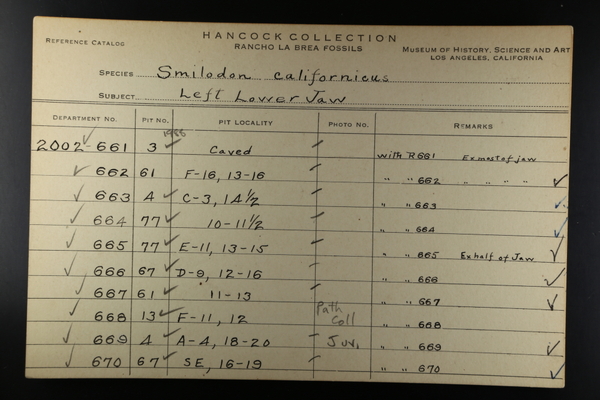 HANCOCK COLLECTION
REFERENCE CATALOG
RANCHO LA BREA FOSSILS
MUSEUM OF HISTORY, SCIENCE AND ART
LOS ANGELES, CALIFORNIA
SPECIES Smilodon californicus
SUBJECT Left Lower Jaw
DEPARTMENT NO. PIT NO. PIT LOCALITY PHOTO NO. REMARKS
1986
2002-661 3 Caved with R661 Ex most of jaw
662 61 F-16, 13-16 " " 662 " " " "
663 4 C-3, 14½ " " 663
664 77 10-11½ " " 664
665 77 E-11, 13-15 " " 665 Ex half of Jaw
666 67 D-9, 12-16 " " 666
667 61 " 11-13 " " 667
668 13 F-11, 12 Path Coll " " 668
669 4 A-4, 18-20 Juv. " " 669
670 67 SE, 16-19 " " 670